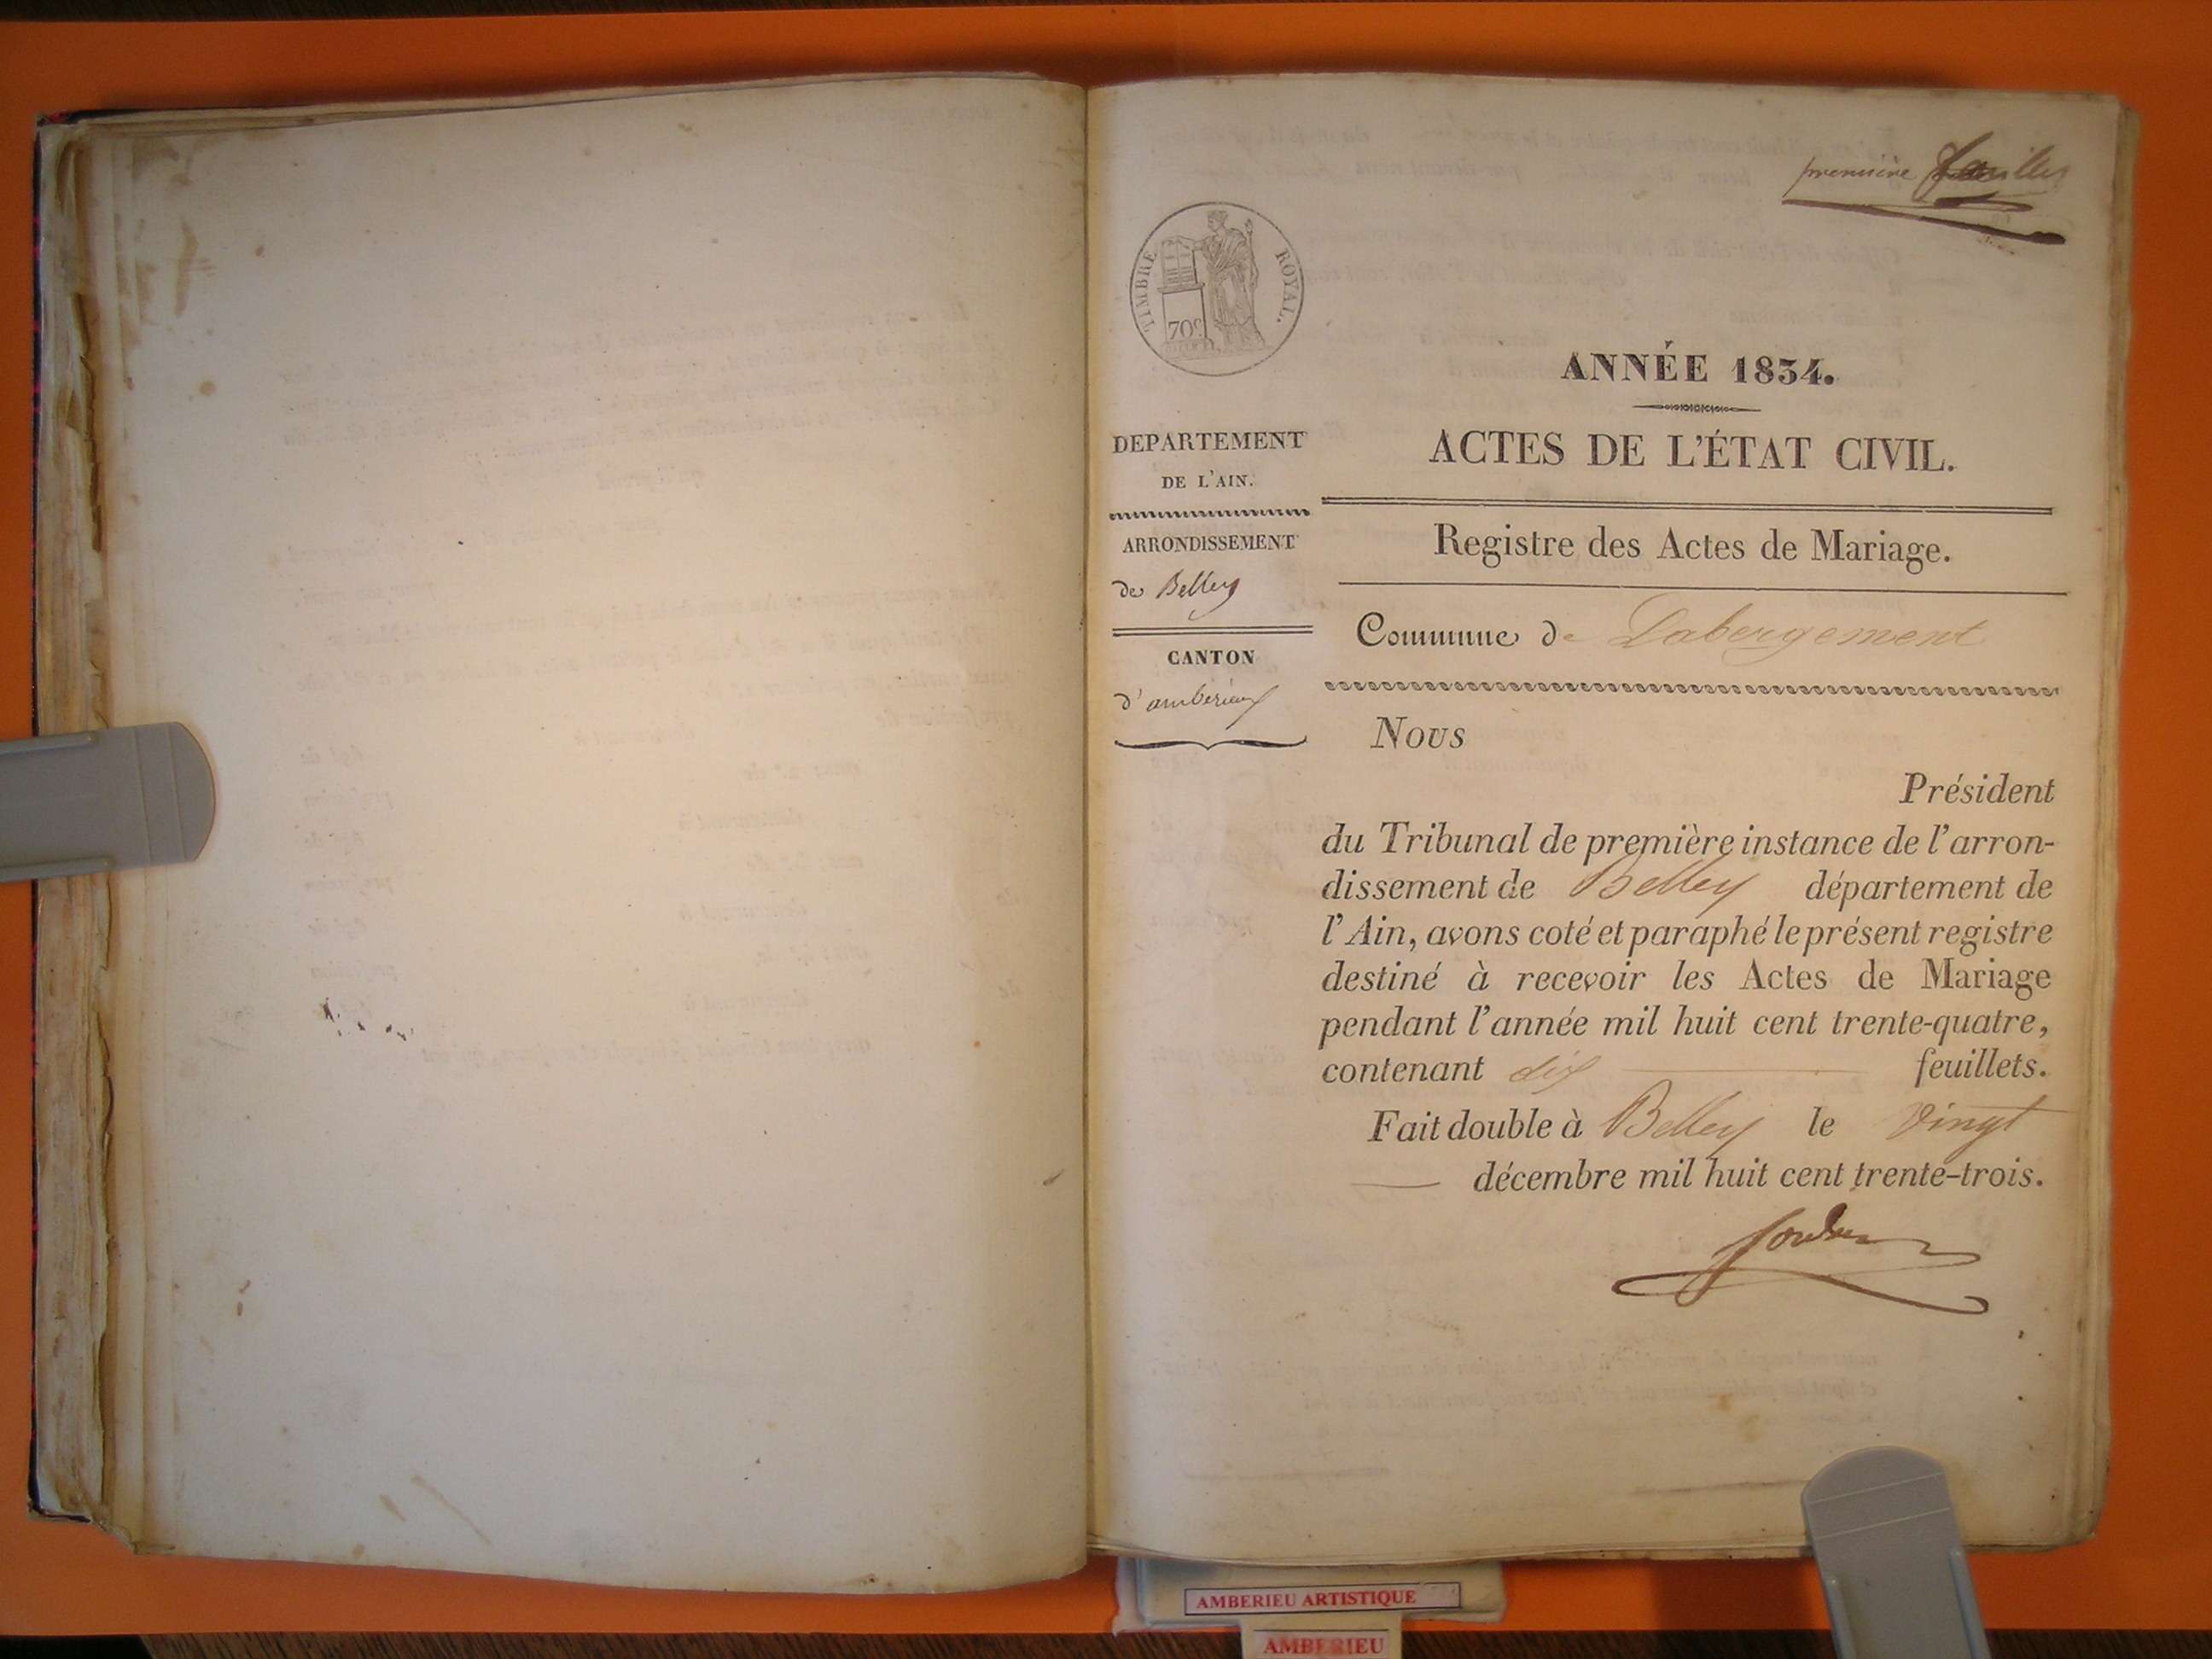 première
TIMBRE ROYAL.
70c
ANNÉE 1834.
ACTES DE L'ÉTAT CIVIL.
Registre des Actes de Mariage.
DEPARTEMENT
DE L'AIN.
ARRONDISSEMENT
de Belley
CANTON
d'ambérieux
Commune de Labergement
Nous
Président
du Tribunal de première instance de l'arron-
dissement de Belley département de
l'Ain, avons coté et paraphé le présent registre
destiné à recevoir les Actes de Mariage
pendant l'année mil huit cent trente-quatre,
contenant dix feuillets.
Fait double à Belley le vingt
décembre mil huit cent trente-trois.
AMBERIEU ARTISTIQUE
AMBERIEU